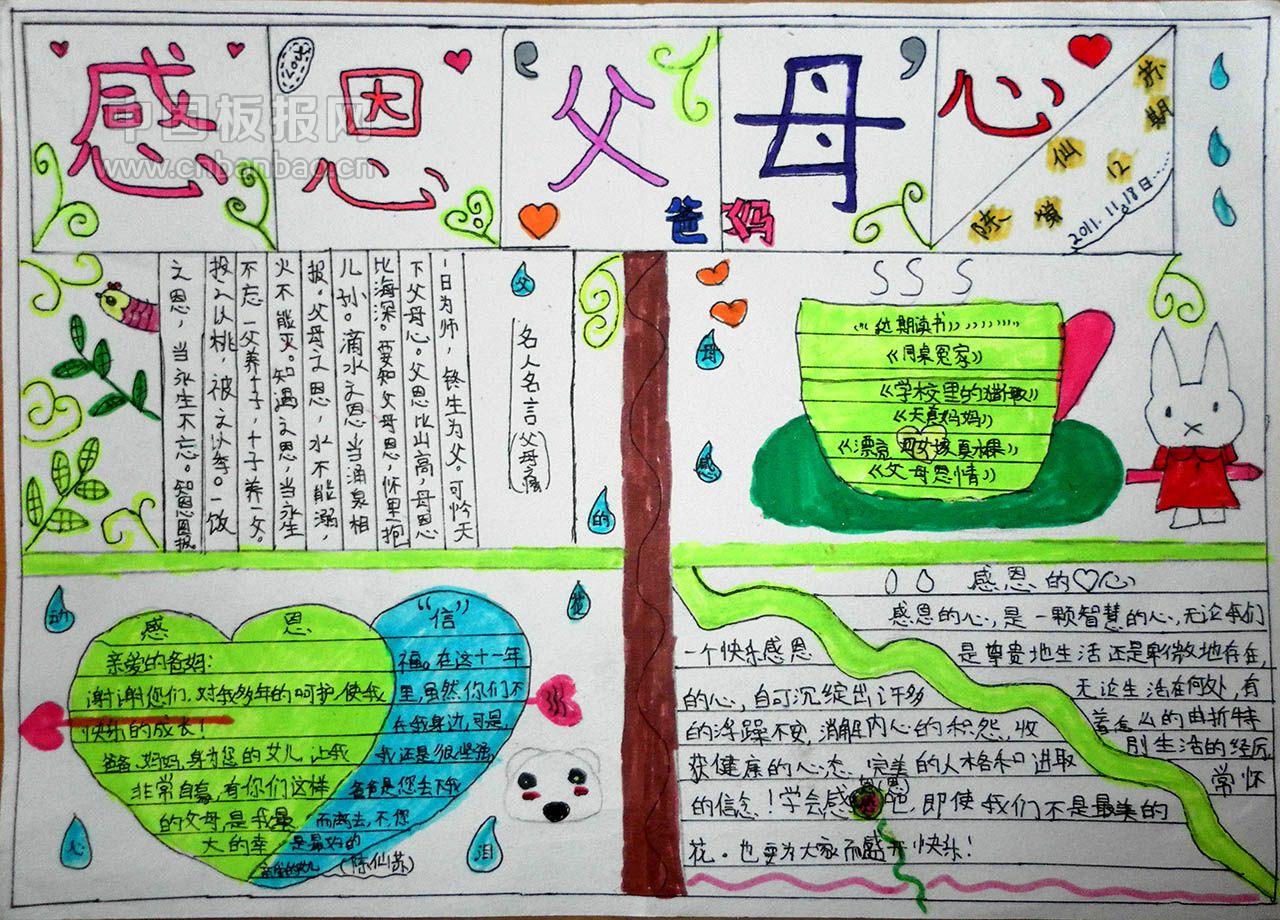 感恩父母心
爸妈
2011.11.18日
中国板报网
www.cnbanbao.cn
名人名言(父母
一日为师，终生为父。可怜天
下父母心。父恩比山高，母恩
比海深。要知父母恩，怀里抱
儿孙。滴水之恩当涌泉相
报。父母之恩，水不能溺，
火不能灭。知遇之恩，当永生
不忘。一父养十子，十子养一父。
投之以桃，被之以李。一饭
之恩，当永生不忘。知恩图报
父
的
母
感
《同桌冤家》
《学校里的
《天真妈妈》
《父母恩情》
感恩“信”
亲爱的爸妈:
谢谢您们.对我多年的呵护,使我
快乐的成长!
爸爸、妈妈,身为您的女儿,让我
非常自豪,有你们这样
的父母,是我最
大的幸
福。在这十一年
里,虽然,你们不
在我身边,可是,
我还是很坚强,
(陈仙苏)
心
泪
感恩的心
感恩的心、是一颗智慧的心、无论我们
是尊贵地生活还是卑微地存在,
无论生活在何处,有
着怎么的曲折特
别生活的经历,
常怀
一个快乐感恩
的心,自可沉绽出许多
的浮躁不安,消解内心的积怨、收
获健康的心态、完美的人格和进取
的信念!学会感恩吧,即使我们不是最美的
花。也要为大家而盛开快乐!